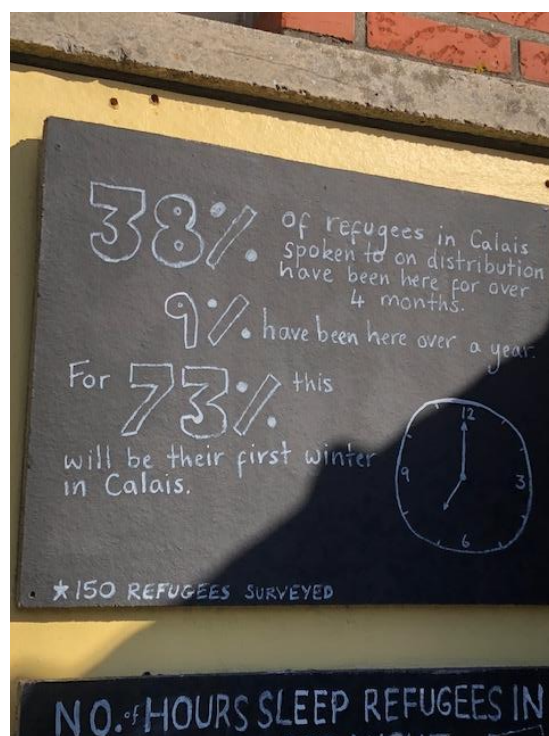 38% of refugees in Calais
spoken to on distribution
have been here for over
4 months.
9% have been here over a year.
For 73% this
will be their first winter
in Calais.
12
9
3
6
★150 REFUGEES SURVEYED
NO. of HOURS SLEEP REFUGEES IN